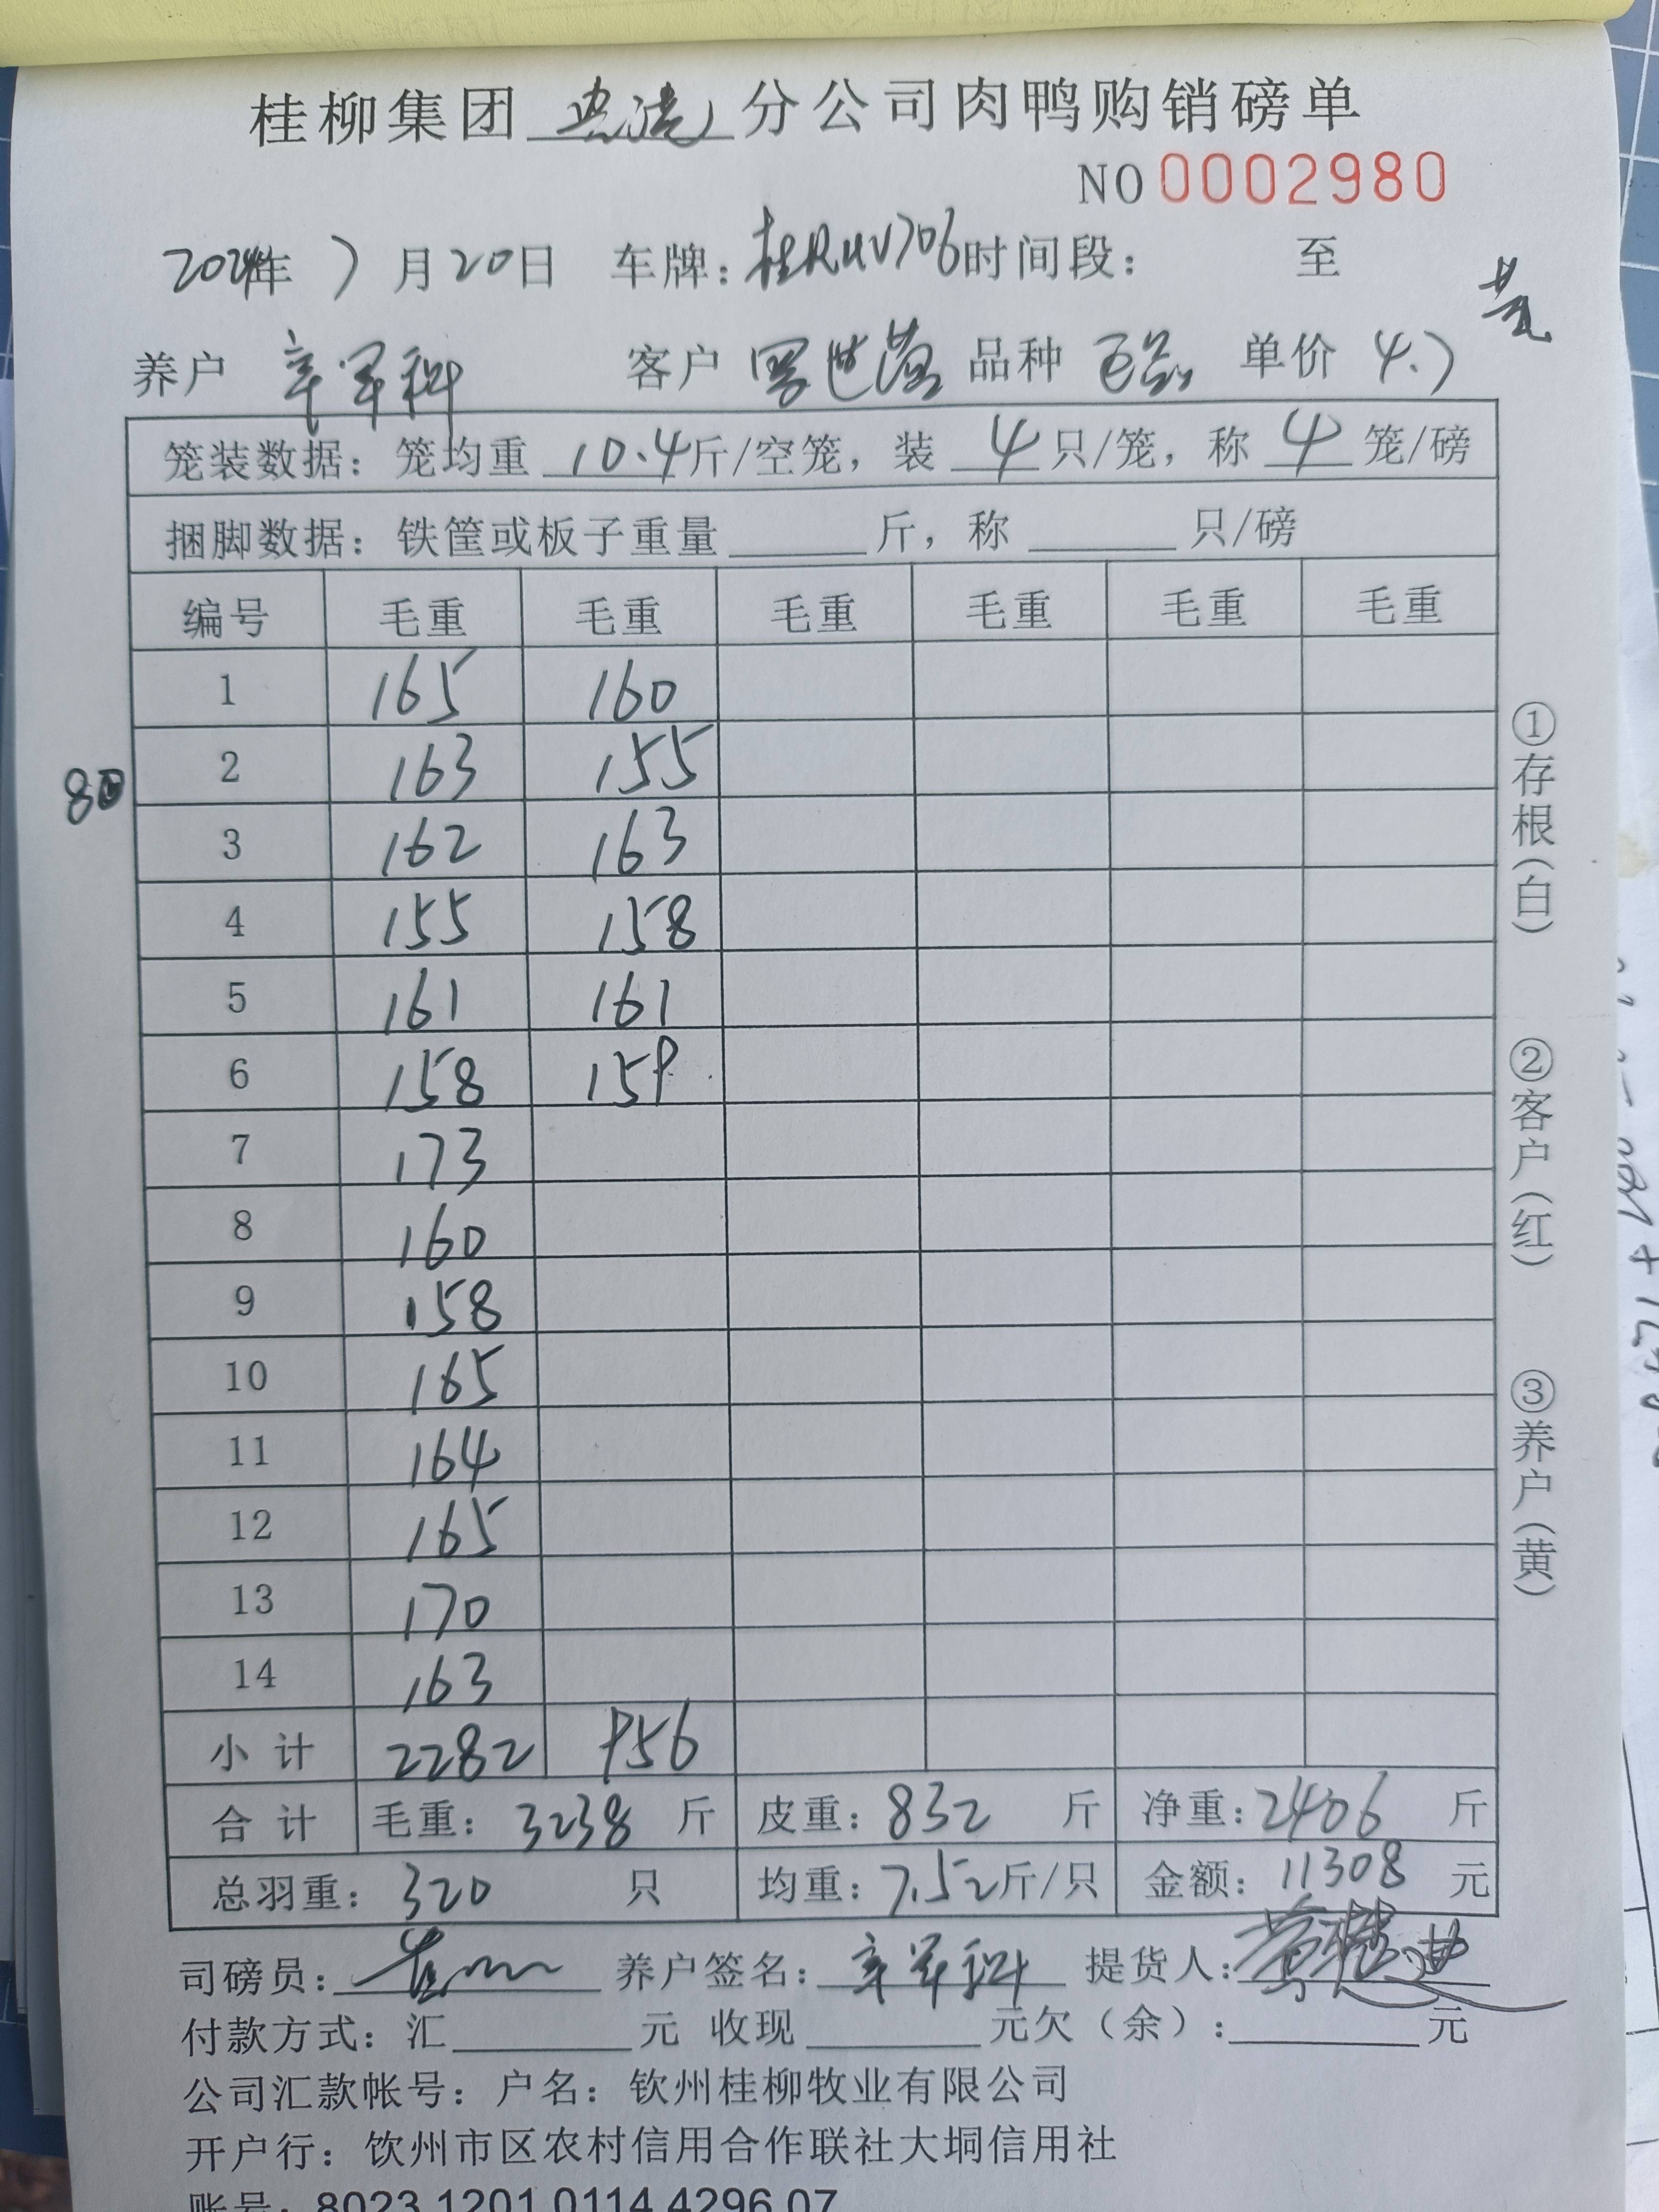 桂柳集团 分公司肉鸭购销磅单
NO 0002980
2024年 7月20日 车牌：桂RUV706时间段： 至
黄
养户 辛军科 客户 罗世 品种 单价 4.7
笼装数据：笼均重 10.4斤/空笼，装 4只/笼，称 4 笼/磅
捆脚数据：铁筐或板子重量______斤，称______只/磅
编号 毛重 毛重 毛重 毛重 毛重 毛重
1 165 160
2 163 155
80
3 162 163
4 155 158
5 161 161
6 158 159
7 173
8 160
9 158
10 165
11 164
12 165
13 170
14 163
小计 2282 956
合计 毛重：3238 斤 皮重：832 斤 净重：2406 斤
总羽重：320 只 均重：7.52斤/只 金额：11308 元
①存根（白） ②客户（红） ③养户（黄）
司磅员： 养户签名：辛军科 提货人：
付款方式：汇______元 收现______元欠（余）：______元
公司汇款帐号：户名：钦州桂柳牧业有限公司
开户行：饮州市区农村信用合作联社大垌信用社
账号：8023 1201 0114 4296 07